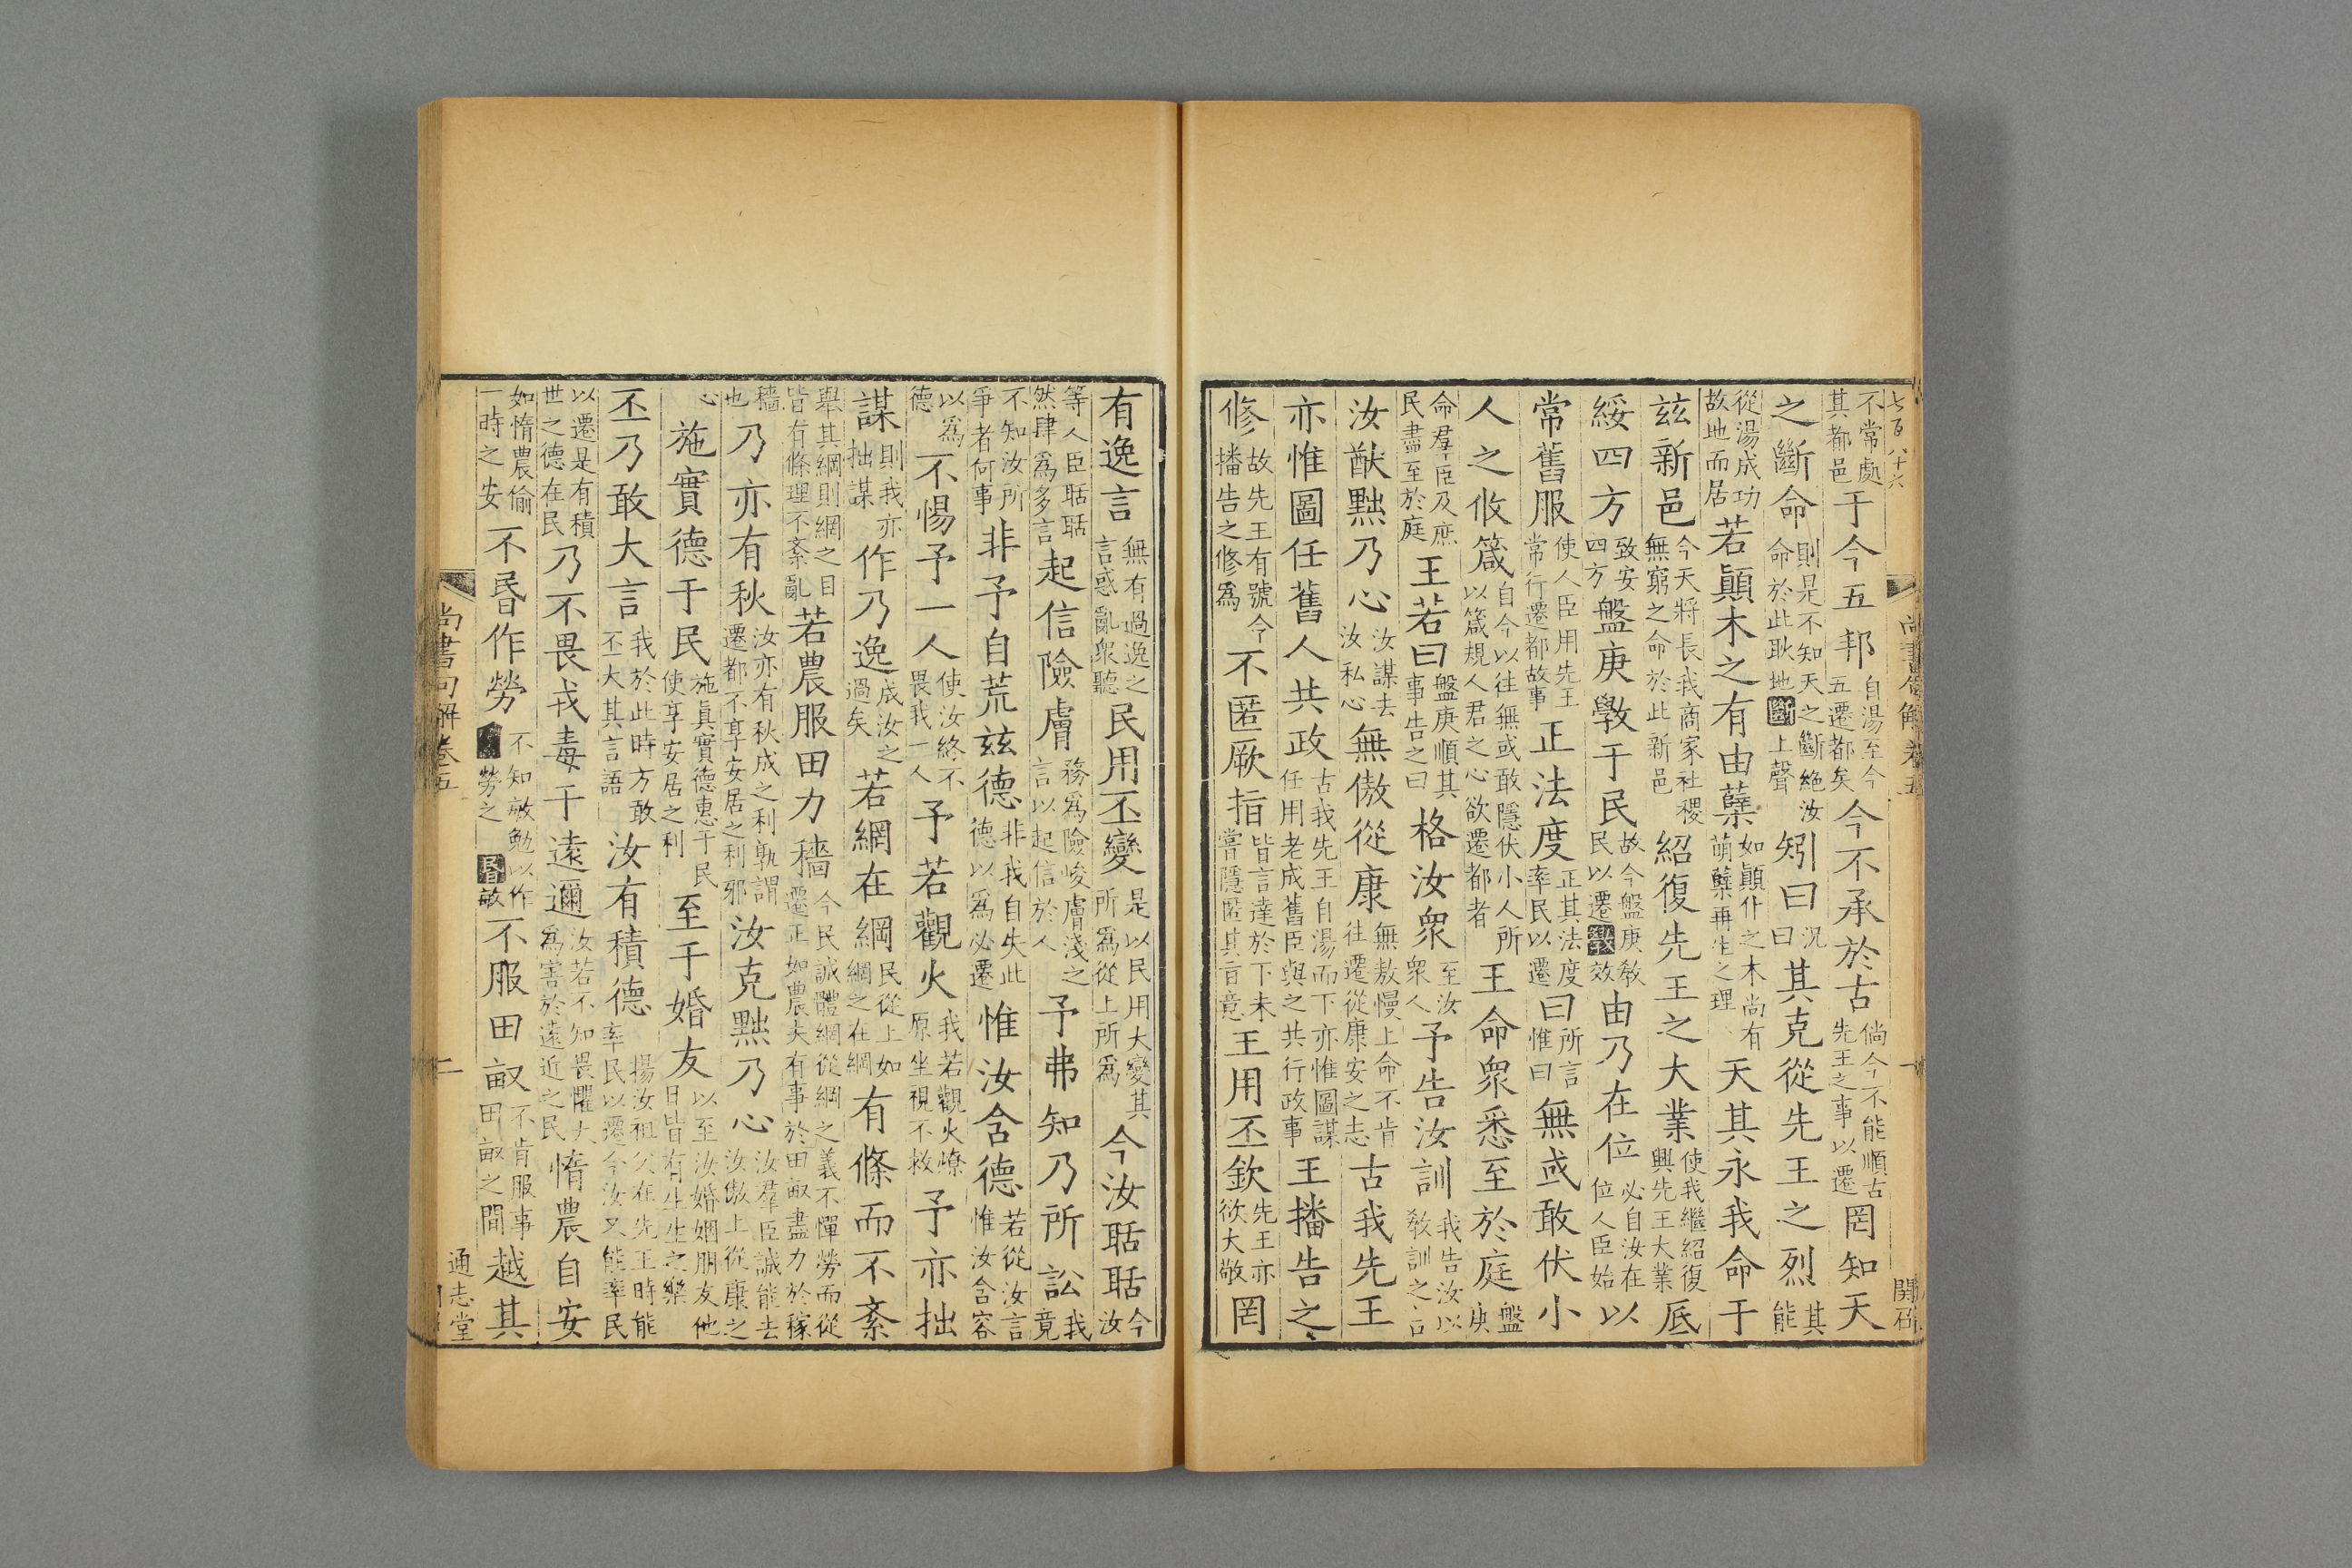 七百八十六
尚書句解卷五
一
不常處其都邑于今五邦自湯至今五遷都矣今不承於古倘今不能順古先王之事以遷罔知天
之斷命則是不知天之斷絕汝命於此耿地斷上聲矧曰況曰其克從先王之烈其能
從湯成功故地而居若顚木之有由蘖如顚仆之木尚有萌蘖再生之理天其永我命于
茲新邑今天將長我商家社稷無窮之命於此新邑紹復先王之大業使我繼紹復興先王大業厎
綏四方致安四方盤庚斆于民故今盤庚敎民以遷斆效由乃在位必自汝在位人臣始以
常舊服使人臣用先王常行遷都故事正法度正其法度率民以遷曰所言惟曰無或敢伏小
人之攸箴自今以往無或敢隱伏小人所以箴規人君之心欲遷都者王命衆悉至於庭盤庚
命羣臣及庶民盡至於庭王若曰盤庚順其事告之曰格汝衆至汝衆人予告汝訓我告汝以敎訓之言
汝猷黜乃心汝謀去汝私心無傲從康無敖慢上命不肯往遷從康安之志古我先王
亦惟圖任舊人共政古我先王自湯而下亦惟圖謀任用老成舊臣與之共行政事王播告之
修故先王有號令播告之修爲不匿厥指皆言達於下未嘗隱匿其旨意王用丕欽先王亦欲大敬罔
有逸言無有過逸之言惑亂衆聽民用丕變是以民用大變其所爲從上所爲今汝聒聒今汝
等人臣聒聒然肆爲多言起信險膚務爲險峻膚淺之言以起信於人予弗知乃所訟我竟
不知汝所爭者何事非予自荒茲德非我自失此德以爲必遷惟汝含德若從汝言惟汝含容
以爲德不惕予一人使汝終不畏我一人予若觀火我若觀火燎原坐視不救予亦拙
謀則我亦拙謀作乃逸成汝之過矣若網在綱民從上如網之在綱有條而不紊
舉其綱則網之目皆有條理不紊亂若農服田力穡今民誠體網從綱之義不憚勞而從遷正如農夫有事於田畝盡力於稼
穡也乃亦有秋汝亦有秋成之利孰謂遷都不享安居之利邪汝克黜乃心汝羣臣誠能去汝傲上從康之
心施實德于民施眞實德惠于民使享安居之利至于婚友以至汝婚姻朋友他日皆有生生之樂
丕乃敢大言我於此時方敢丕大其言語汝有積德揚汝祖父在先王時能率民以遷今汝又能率民
以遷是有積世之德在民乃不畏戎毒于遠邇汝若不知畏懼大爲害於遠近之民惰農自安
如惰農偷一時之安不昬作勞不知敏勉以作勞之昬敏不服田畝不肯服事田畝之間越其
尚書句解卷五
二
通志堂